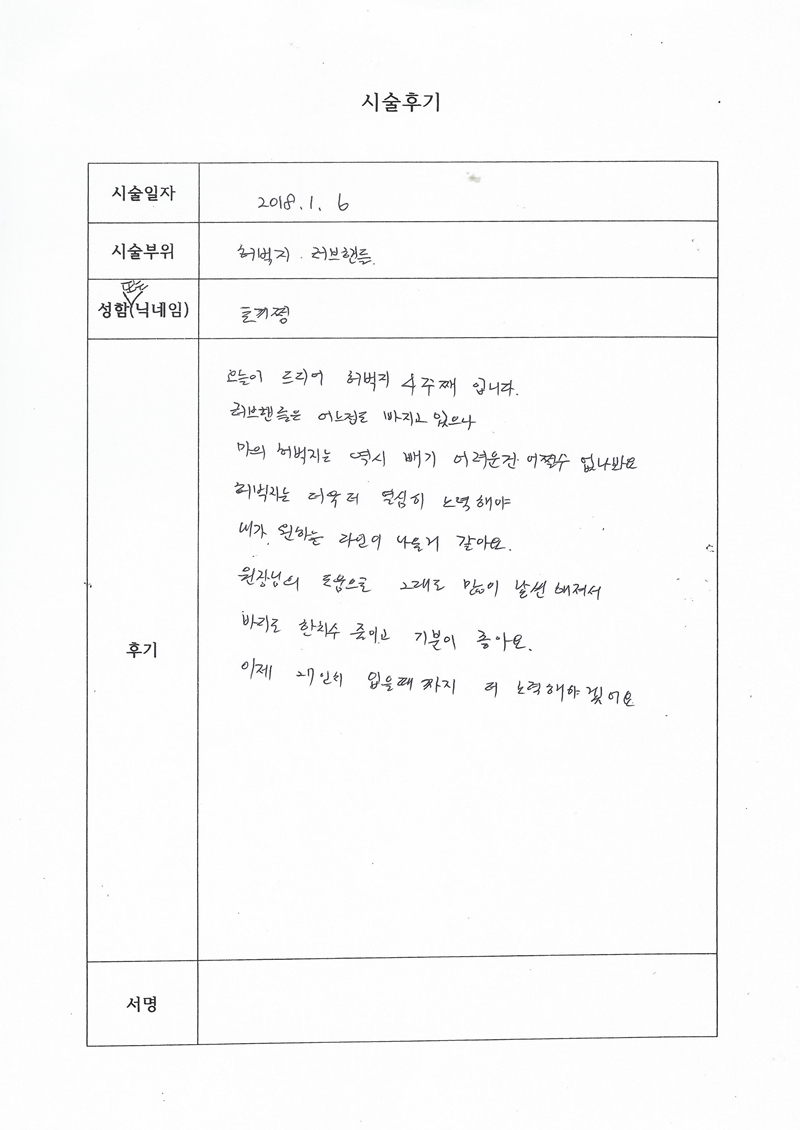 시술후기
시술일자 2018. 1. 6
시술부위 허벅지. 러브핸들.
또는
성함(닉네임)
오늘이 드디어 허벅지 4주째 입니다.
러브핸들은 어느정도 빠지고 있으나
마의 허벅지는 역시 빼기 어려운건 어쩔수 없나봐요
허벅지는 더욱 더 열심히 노력해야
내가 원하는 라인이 나올거 같아요.
원장님의 도움으로 그래도 많이 날씬해져서
바지도 한치수 줄이고 기분이 좋아요.
후기
이제 27인치 입을때까지 더 노력해야겠어요
서명